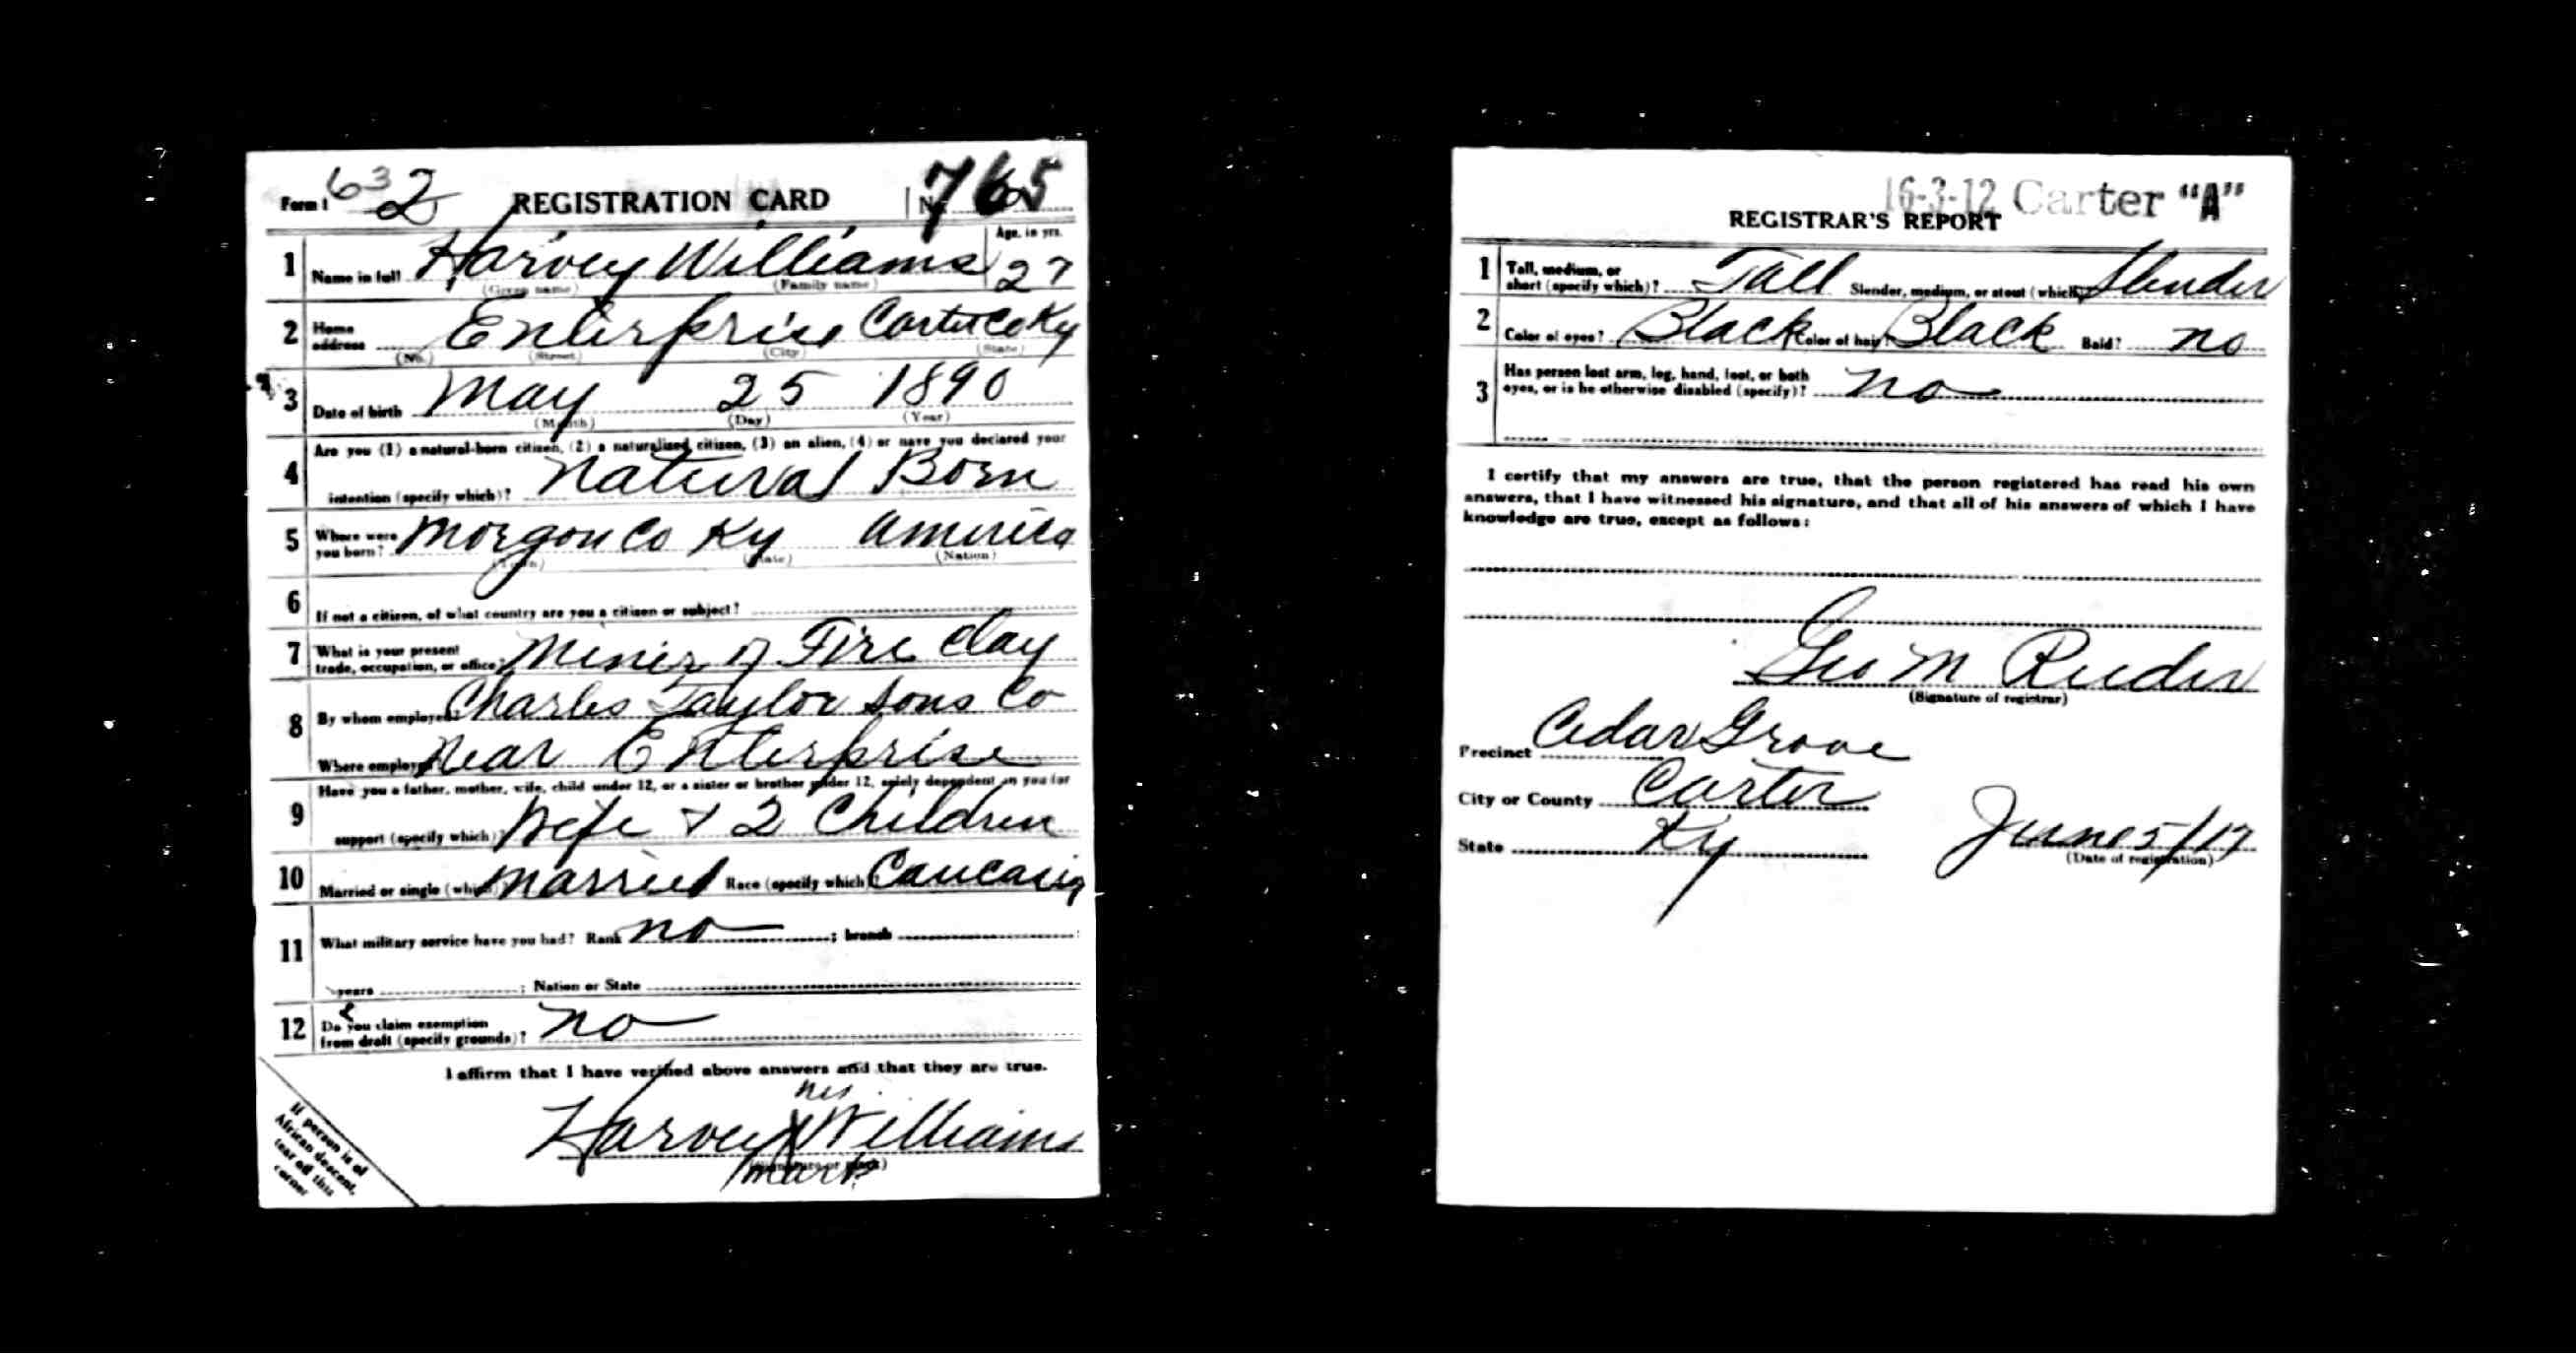 Form 1 632 REGISTRATION CARD No. 765
1 Name in full Harvey Williams Age, in yrs. 27
(Given name) (Family name)
2 Home address Enterprise Carter Co Ky
(No.) (Street) (City) (State)
3 Date of birth May 25 1890
(Month) (Day) (Year)
4 Are you (1) a natural-born citizen, (2) a naturalized citizen, (3) an alien, (4) or have you declared your
intention (specify which)? Natural Born
5 Where were you born? Morgan Co Ky America
(Town) (State) (Nation)
6 If not a citizen, of what country are you a citizen or subject?
7 What is your present trade, occupation, or office? Miner of Fire Clay
8 By whom employed? Charles Taylor Sons Co
Where employed? Near Enterprise
9 Have you a father, mother, wife, child under 12, or a sister or brother under 12, solely dependent on you for
support (specify which)? Wife & 2 Children
10 Married or single (which)? Married Race (specify which)? Caucasia
11 What military service have you had? Rank no ; branch
years ; Nation or State
12 Do you claim exemption from draft (specify grounds)? no
I affirm that I have verified above answers and that they are true.
his
Harvey X Williams
(Signature or mark)
mark
If person is of
African descent,
tear off this
corner
16-3-12 Carter "A"
REGISTRAR'S REPORT
1 Tall, medium, or short (specify which)? Tall Slender, medium, or stout (which)? Slender
2 Color of eyes? Black Color of hair? Black Bald? no
3 Has person lost arm, leg, hand, foot, or both
eyes, or is he otherwise disabled (specify)? no
I certify that my answers are true, that the person registered has read his own
answers, that I have witnessed his signature, and that all of his answers of which I have
knowledge are true, except as follows:
Geo M
(Signature of registrar)
Precinct Cedar Grove
City or County Carter
State Ky June 5/17
(Date of registration)